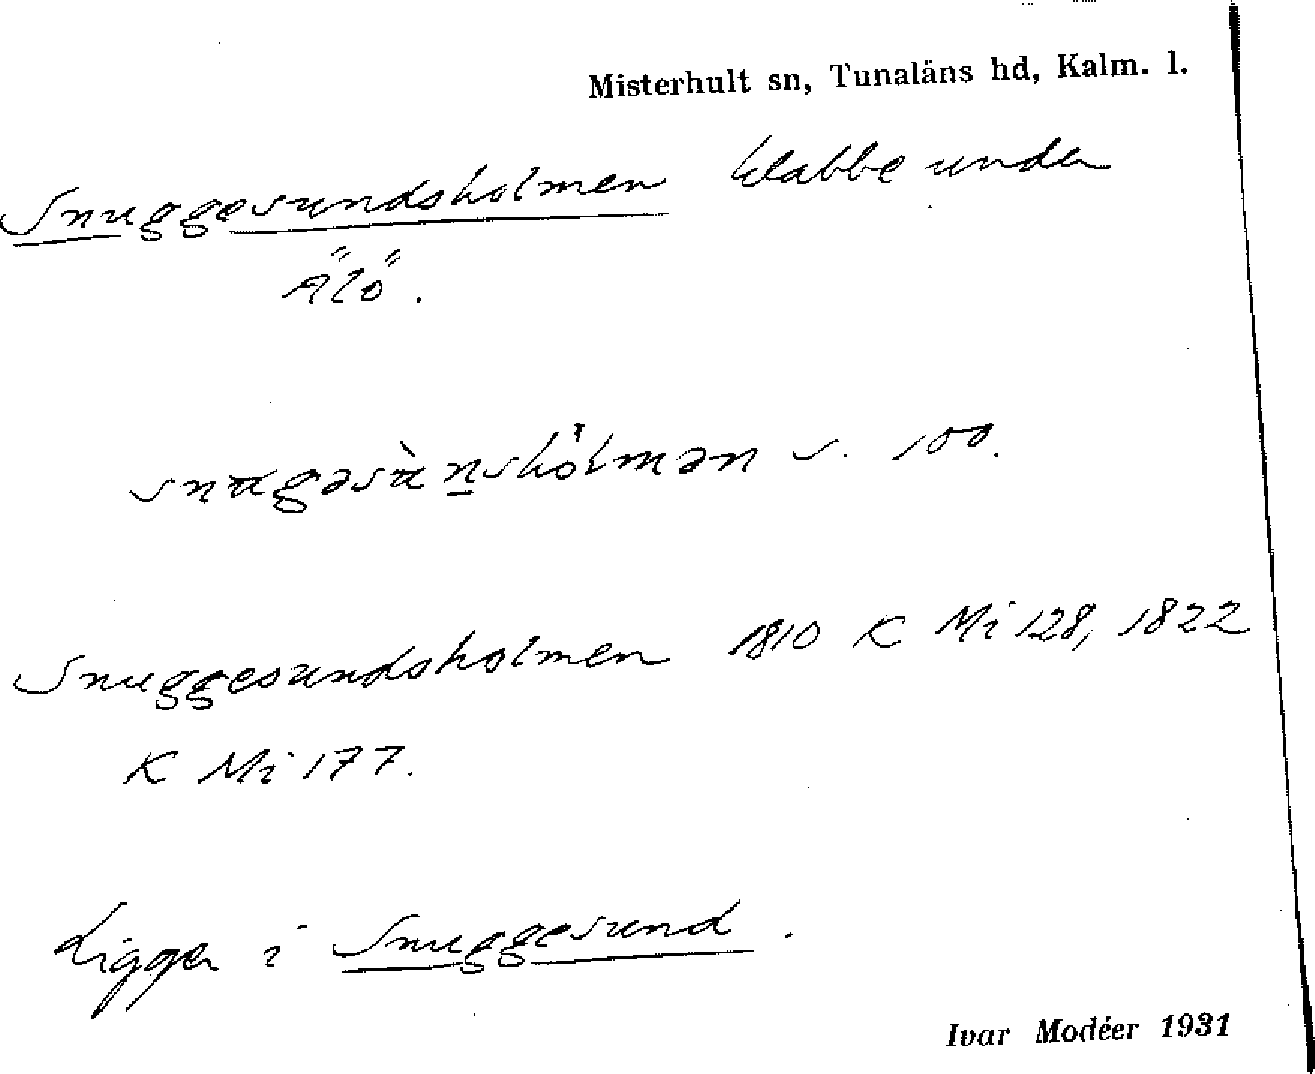 Misterhult sn, Tunaläns hd, Kalm. l.
Snuggesundsholmen klabbe under
Älö.
s. 100.
Snuggesundsholmen 1810 K Mi 128, 1822
K Mi 177.
Ligger i Snuggesund.
Ivar Modéer 1931